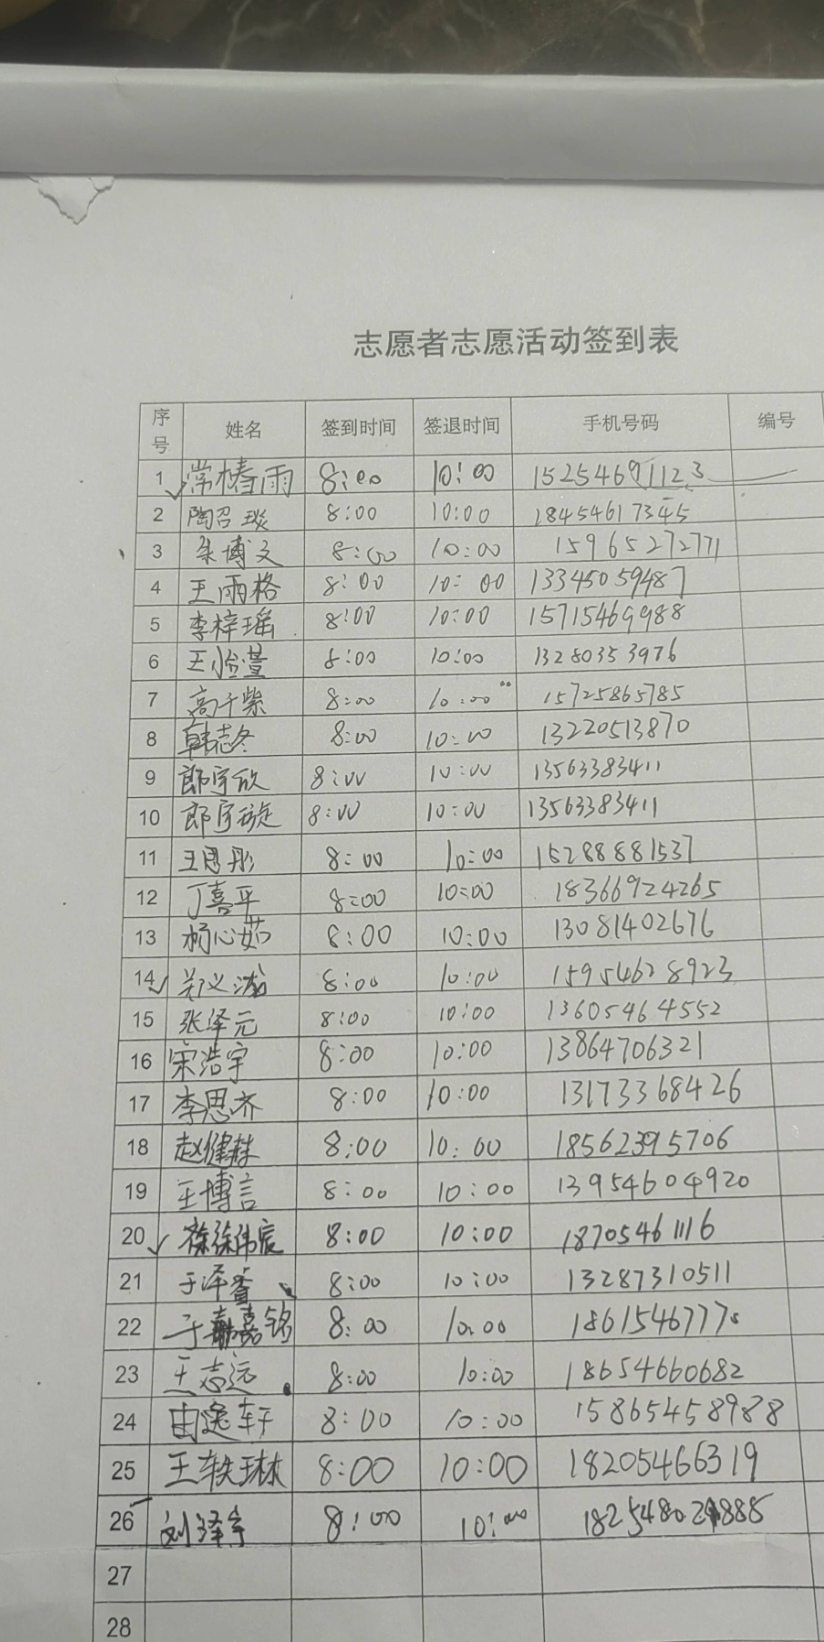 志愿者志愿活动签到表
序号 姓名 签到时间 签退时间 手机号码 编号
1 常椿雨 8:00 10:00 15254691123
2 陶召琰 8:00 10:00 18454617345
3 朱博文 8:00 10:00 15965272771
4 王雨格 8:00 10:00 13345059487
5 李梓瑶 8:00 10:00 15715469988
6 王怡萱 8:00 10:00 13280353976
7 高子紫 8:00 10:00 15725865785
8 韩志冬 8:00 10:00 13220513870
9 郎宇欣 8:00 10:00 13563383411
10 郎宇璇 8:00 10:00 13563383411
11 王思彤 8:00 10:00 15288881537
12 丁喜平 8:00 10:00 18366924265
13 杨心茹 8:00 10:00 13081402676
14 郑义 8:00 10:00 15954628923
15 张泽元 8:00 10:00 13605464552
16 宋浩宇 8:00 10:00 13864706321
17 李思齐 8:00 10:00 13173368426
18 赵健 8:00 10:00 18562395706
19 王博言 8:00 10:00 13954604920
20 徐伟宸 8:00 10:00 18705461116
21 于泽 8:00 10:00 13287310511
22 于嘉铭 8:00 10:00
23 王志远 8:00 10:00 18654660682
24 由逸轩 8:00 10:00 15865458988
25 王轶琳 8:00 10:00 18205466319
26 刘泽宇 8:00 10:00
27
28